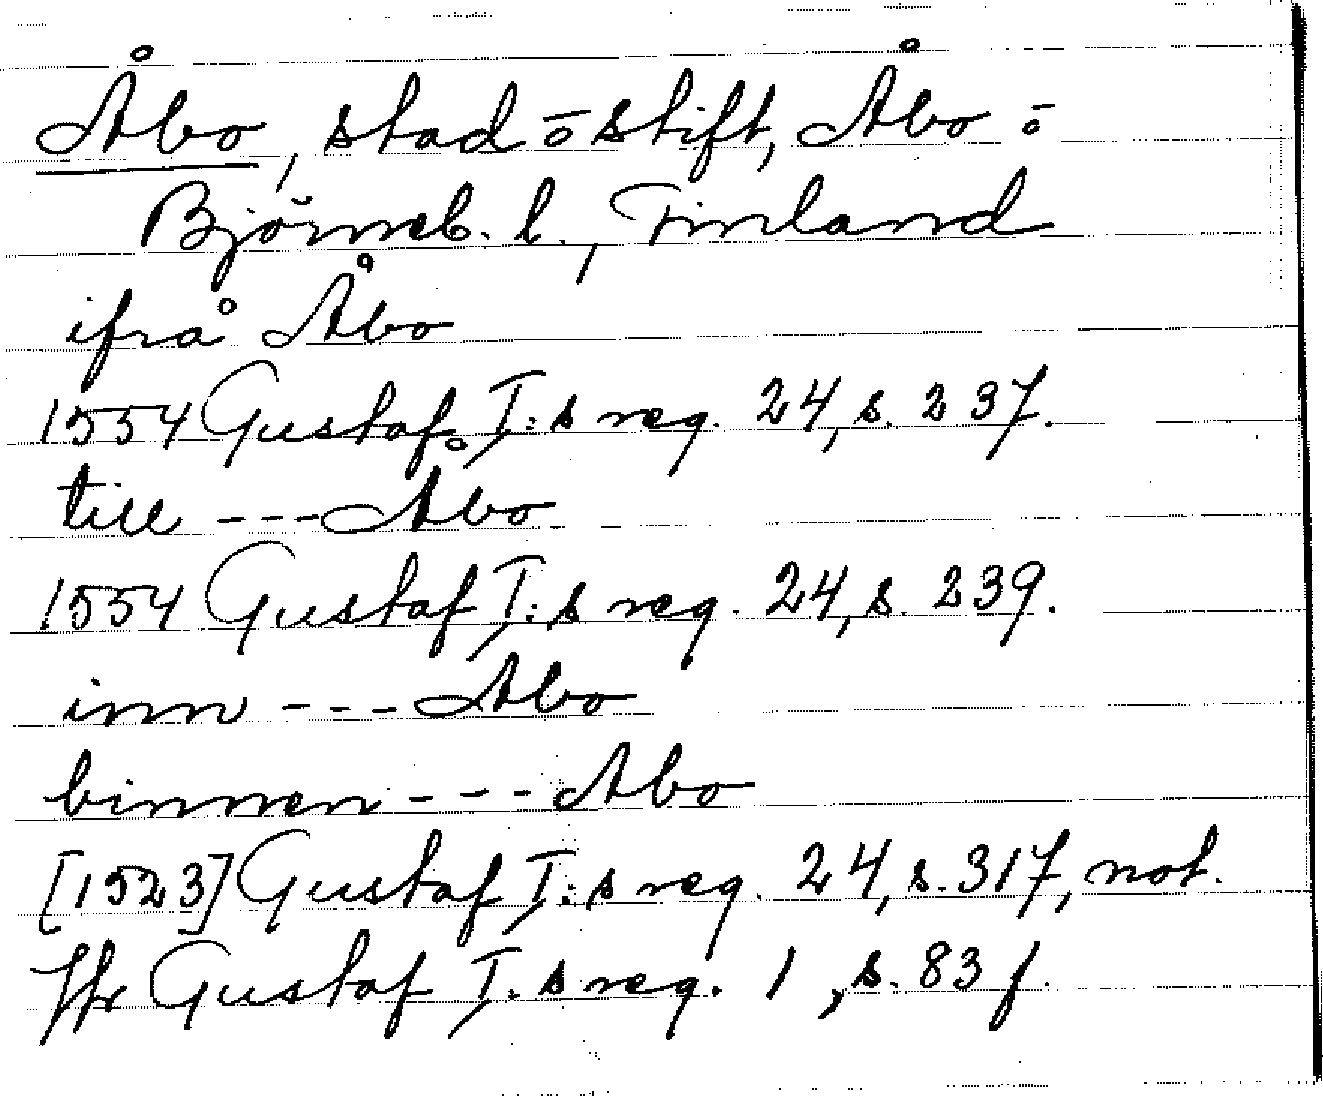 Åbo, stad ō stift, Åbo ō
Björneb. l., Finland
ifrå Åbo
1554 Gustaf I:s reg. 24, s. 237.
till --- Åbo
1554 Gustaf I:s reg. 24, s. 239.
inn --- Abo
binnen --- Abo
[1523] Gustaf I:s reg. 24, s. 317, not.
Jfr Gustaf I:s reg. 1, s. 83 f.